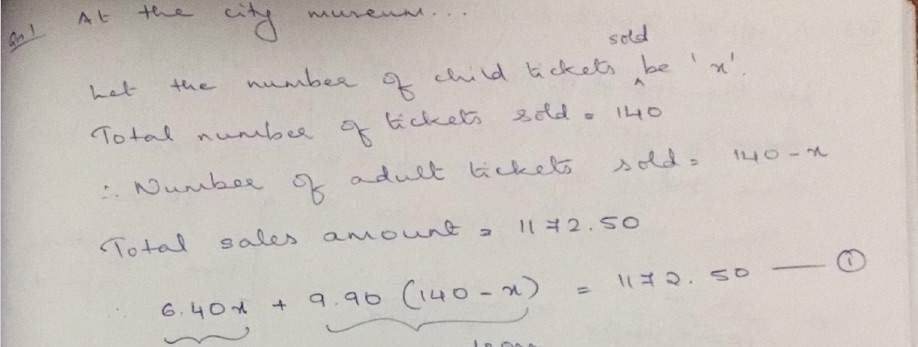 Qn 1 At the city museum...
Let the number of child tickets sold be 'x'.
Total number of tickets sold = 140
∴ Number of adult tickets sold = 140 - x
Total sales amount = 1172.50
∴ 6.40x + 9.90 (140 - x) = 1172.50 — ①